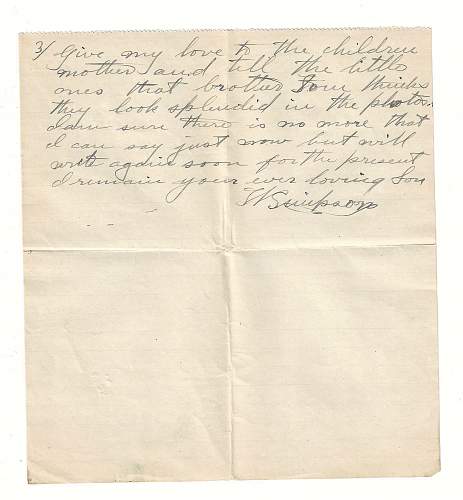 3/ Give my love to the children
mother and tell the little
ones that brother Tom thinks
they look splendid in the photos.
I am sure there is no more that
I can say just now but will
write again soon for the present
I remain your ever loving Son
Simpson